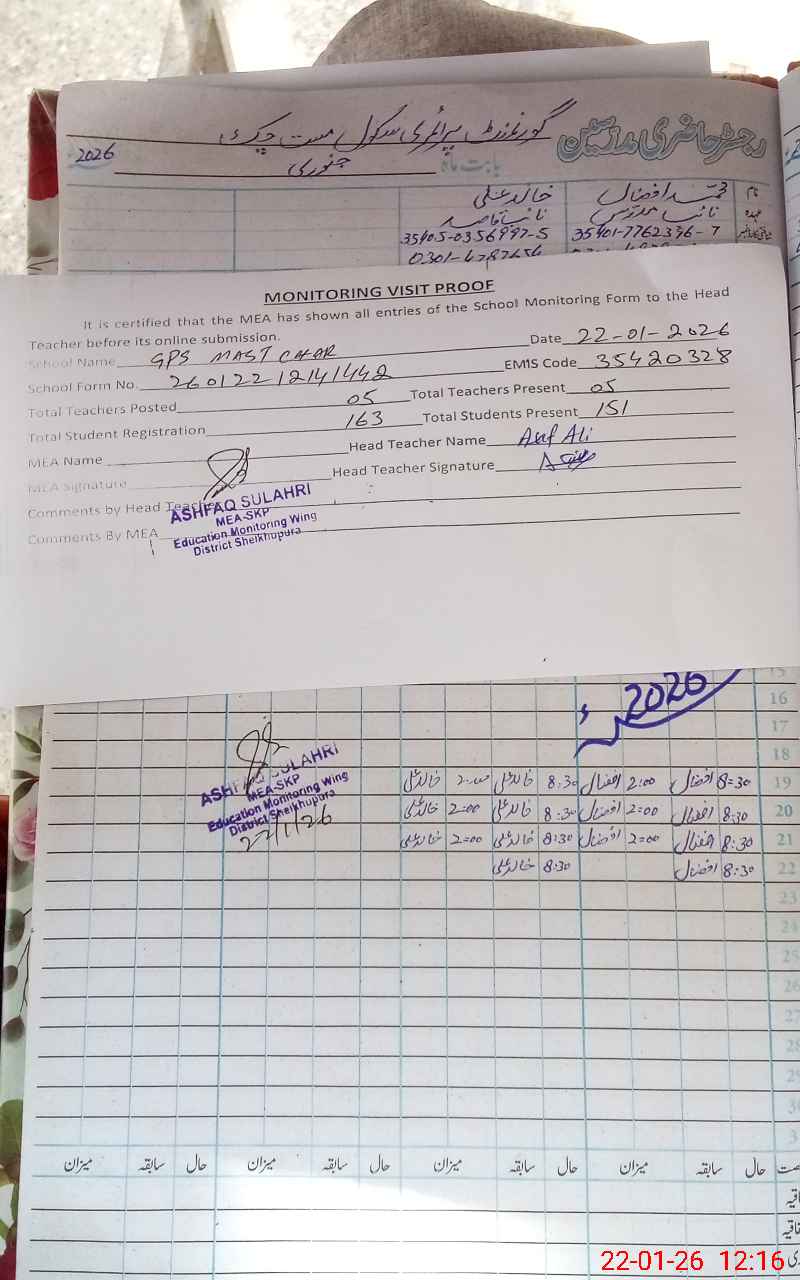 رجسٹر حاضری مدرسین
گورنمنٹ پرائمری سکول مست چک
بابت ماہ جنوری 2026
نام محمد افضال خالد علی
عہدہ نائب مدرس نائب قاصد
35401-7762336-7 35405-0356997-5
0301-4787656
MONITORING VISIT PROOF
It is certified that the MEA has shown all entries of the School Monitoring Form to the Head
Teacher before its online submission.
School Name GPS MAST CHAK Date 22-01-2026
School Form No. 26012212141442 EMIS Code 35420328
Total Teachers Posted 05 Total Teachers Present 05
Total Student Registration 163 Total Students Present 151
MEA Name Head Teacher Name Asif Ali
MEA Signature Head Teacher Signature
Comments by Head Teacher
ASHFAQ SULAHRI
MEA-SKP
Education Monitoring Wing
District Sheikhupura
Comments By MEA
15
16
2026
17
18
19 8=30 افضال 2:00 افضال 8:30 خالد علی 2:00 خالد علی
20 8:30 افضال 2=00 افضال 8:30 خالد علی 2=00 خالد علی
21 8:30 افضال 2=00 افضال 8:30 خالد علی 2=00 خالد علی
22 8:30 افضال 8:30 خالد علی
ASHFAQ SULAHRI
MEA-SKP
Education Monitoring Wing
District Sheikhupura
22/1/26
23
24
25
26
27
28
29
30
3
حال سابقہ میزان حال سابقہ میزان حال سابقہ میزان حال سابقہ میزان
22-01-26 12:16